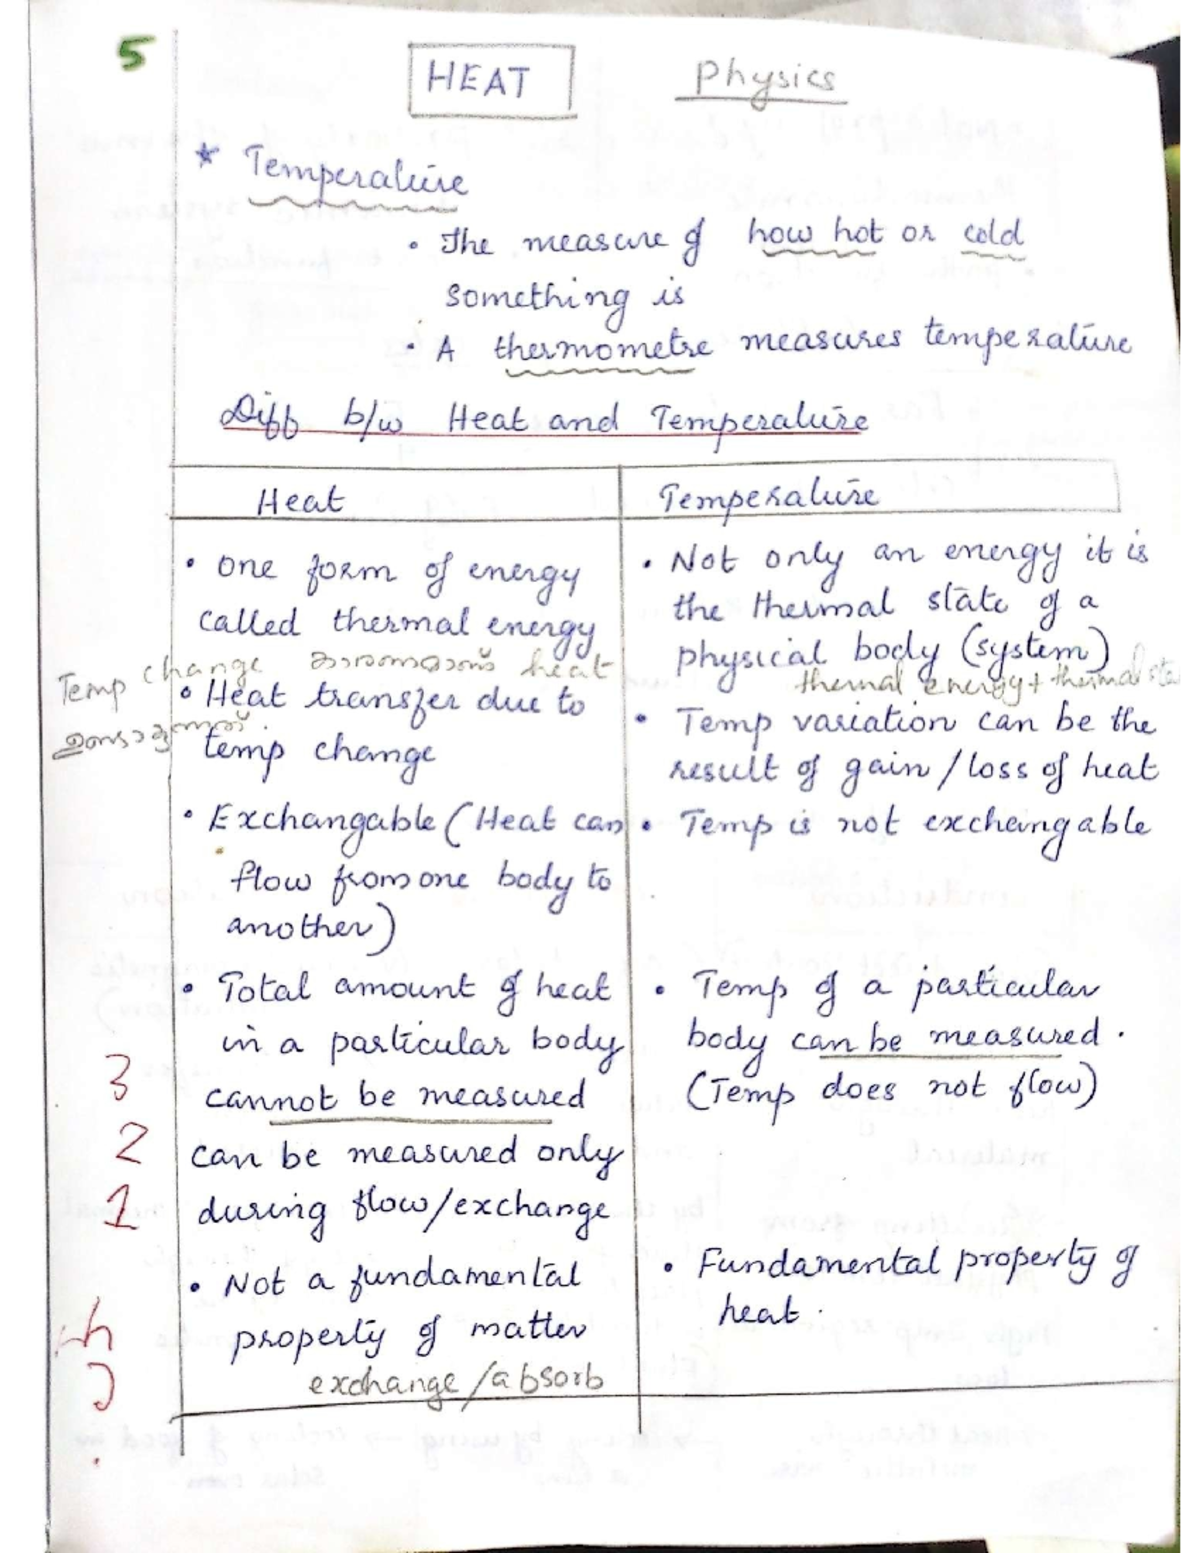 5
HEAT Physics
* Temperature
• The measure of how hot or cold
something is
• A thermometre measures temperature
Diff b/w Heat and Temperature
Heat
• one form of energy
called thermal energy
Temp change heat
• Heat transfer due to
temp change
• Exchangable (Heat can
flow from one body to
another)
• Total amount of heat
in a particular body
cannot be measured
can be measured only
during flow/exchange
• Not a fundamental
property of matter
exchange/absorb
Temperature
• Not only an energy it is
the thermal state of a
physical body (system)
thermal energy + thermal
• Temp variation can be the
result of gain/loss of heat
• Temp is not exchangable
• Temp of a particular
body can be measured.
(Temp does not flow)
• Fundamental property of
heat.
3
2
1